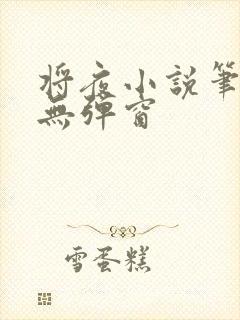 將夜小說筆
無彈窗
雪蛋糕